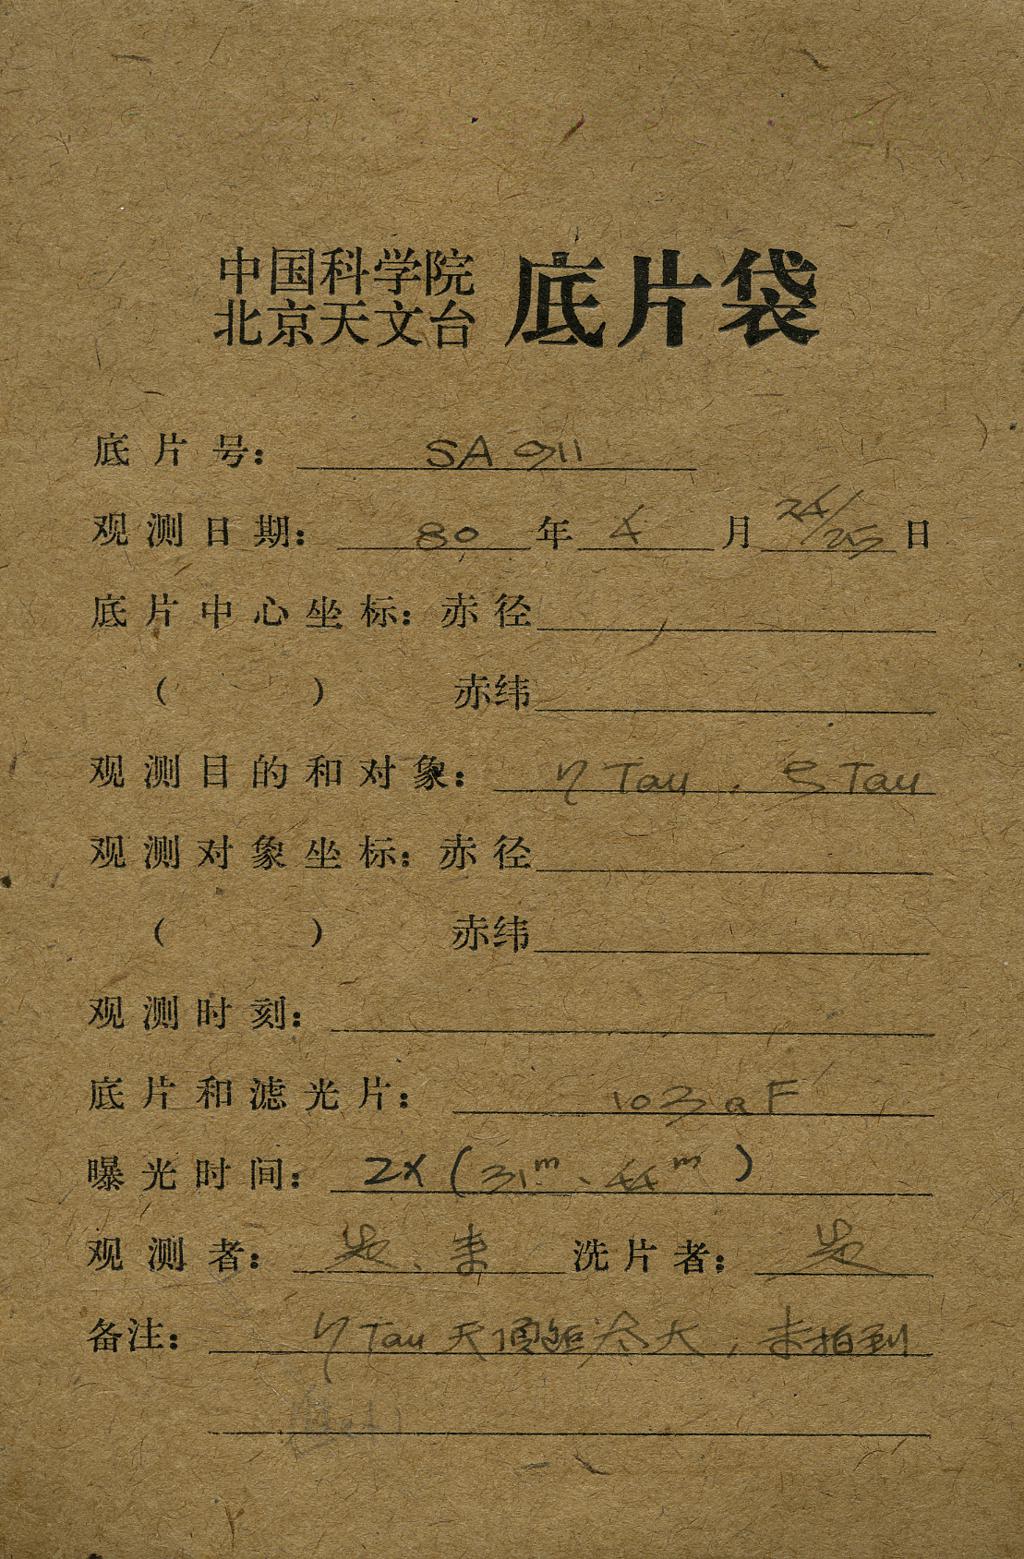 中国科学院
北京天文台 底片袋
底片号： SA 911
观测日期： 80 年 4 月 24/25 日
底片中心坐标：赤径
（ ） 赤纬
观测目的和对象： η Tau , ζ Tau
观测对象坐标：赤径
（ ） 赤纬
观测时刻：
底片和滤光片： 103aF
曝光时间： 2X (31m、44m)
观测者： 洗片者：
备注： η Tau 天顶距太大，未拍到